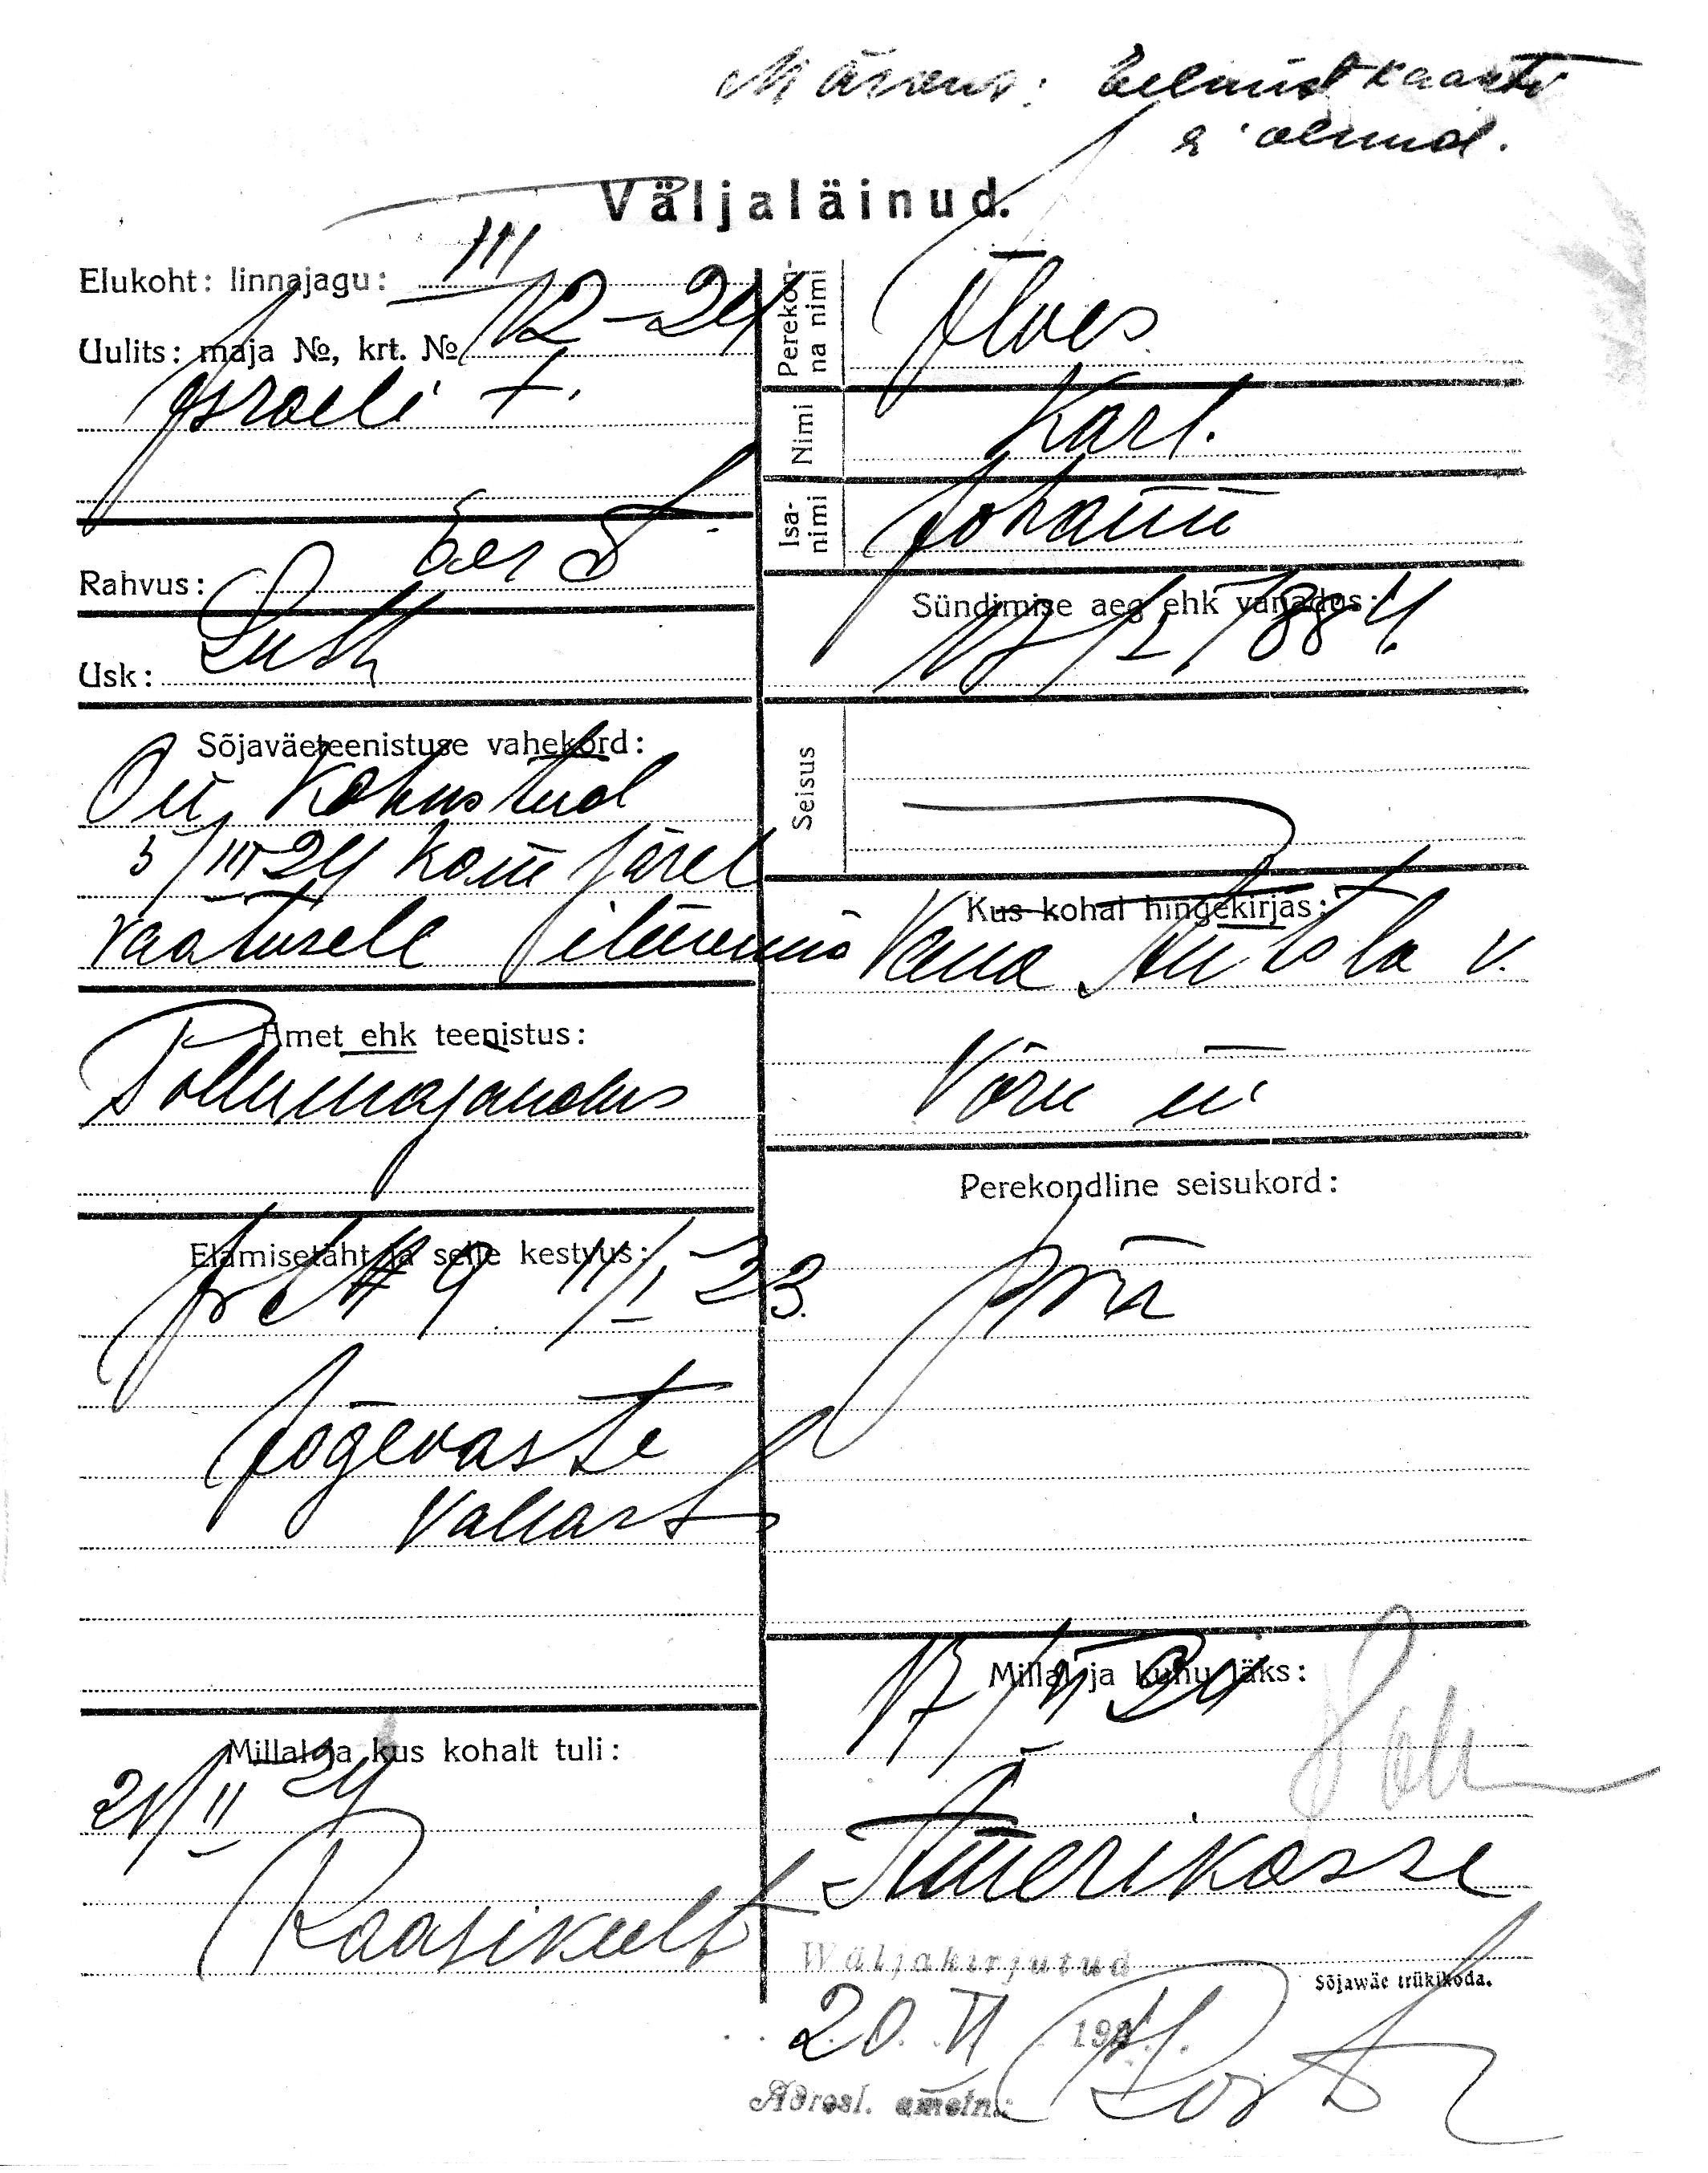 Märkus: Eelmist kaarti
ei olnud.
Väljaläinud.
Elukoht: linnajagu: III
Uulits: maja №, krt. № 12-24
Israeli t.
Rahvus: Eest
Usk: Luth
Sõjaväeteenistuse vahekord:
On kohustud
5/III 24 kom järel
vaatusele ilmuma
Amet ehk teenistus:
Põllumajandus
Elamisetäht ja selle kestvus:
№ 9 11/I-23.
Jõgevaste
vallast
Millal ja kus kohalt tuli:
21/II 24
Raasikult
Perekonna nimi
Nimi Karl.
Isanimi Johann
Sündimise aeg ehk vanadus:
17/I 1884.
Seisus
Kus kohal hingekirjas:
Vana Antsla v.
Võru m
Perekondline seisukord:
Millal ja kuhu läks:
17/VI 24
Amerikasse
Wäljakirjutud
20. VI 1924.
Adresl. ametn.:
Sõjawäe trükikoda.